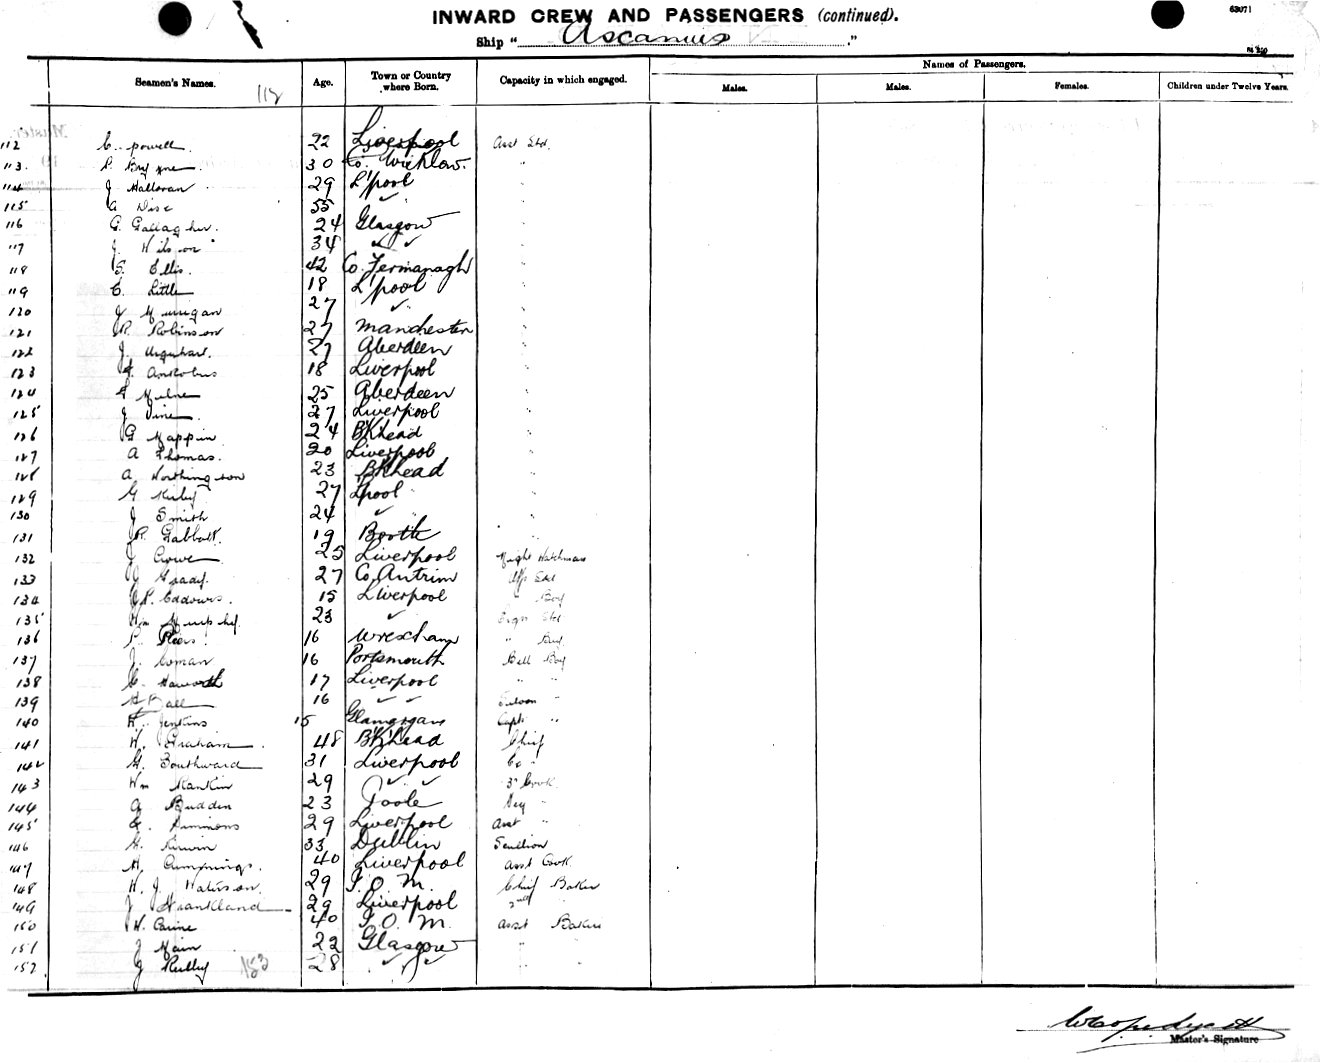 63071
INWARD CREW AND PASSENGERS (continued).
Ship "Ascanius."
Seamen's Names. Age. Town or Country where Born. Capacity in which engaged. Names of Passengers.
Males. Males. Females. Children under Twelve Years.
112
112 C. Powell. 22 Liverpool Asst Std.
113. P. Byrne 30 Co. Wicklow. "
114 J Halloran 29 L'pool "
115 A 55 ✓ "
116 G. Gallagher. 24 Glasgow "
117 J. Wilson 34 ✓ ✓ "
118 S. Ellis. 42 Co. Fermanagh "
119 C. Little 18 L'pool "
120 J 27 ✓ "
121 R. Robinson 27 Manchester "
122 J. Urquhart. 27 Aberdeen "
123 F. Antrobus 18 Liverpool "
124 F Milne 25 Aberdeen "
125 J Vine 27 Liverpool "
126 G Mappin 24 B'Khead "
127 A Thomas. 20 Liverpool "
128 A Worthington 23 B'Khead "
129 G Kirby 27 L'pool "
130 J Smith 24 ✓ "
131 R. Gabbott. 19 Bootle "
132 J Crowe 25 Liverpool Night Watchman
133 J Grady. 27 Co. Antrim Offs Std
134 J.P. 15 Liverpool " Boy
135 Wm Murphy. 23 ✓ Engrs Std
136 P. Peers 16 Wrexham " Boy.
137 J. Coman 16 Portsmouth Bell Boy
138 C. Haworth 17 Liverpool " "
139 H Ball 16 ✓ ✓ Saloon "
140 W. Jenkins 15 Glamorgan Capts "
141 W. Graham. 48 B'K'head Chief
142 G. Southward 31 Liverpool
143 Wm Rankin 29 ✓ ✓ 3rd Cook
144 A Budden 23 Poole "
145 Simmons 29 Liverpool Asst "
146 Kirwin 33 Dublin Scullion
147 H. Cummings. 40 Liverpool Asst Cook.
148 W. J. Waterson. 29 I.O.M. Chief Baker
149 J Frankland 29 Liverpool 2nd "
150 W. Carine 40 I.O.M. Asst Baker
151 J Main 22 Glasgow " "
152 J 28 ✓ ✓ " "
152
Master's Signature